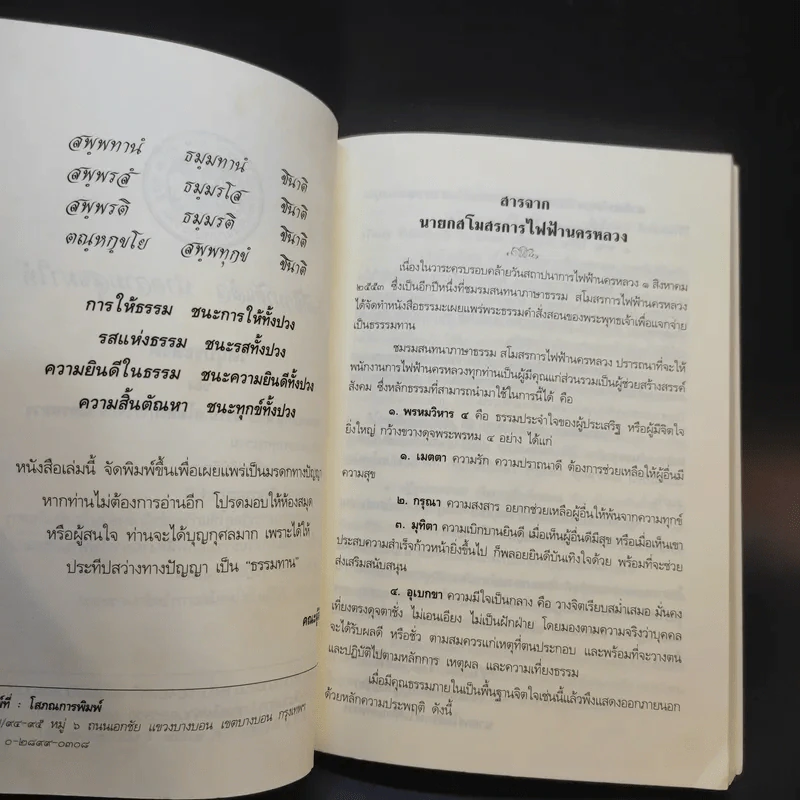 สพฺพทานํ ธมฺมทานํ ชินาติ
สพฺพรสํ ธมฺมรโส ชินาติ
สพฺพรติ ธมฺมรติ ชินาติ
ตณฺหกฺขโย สพฺพทุกฺขํ ชินาติ
การให้ธรรม ชนะการให้ทั้งปวง
รสแห่งธรรม ชนะรสทั้งปวง
ความยินดีในธรรม ชนะความยินดีทั้งปวง
ความสิ้นตัณหา ชนะทุกข์ทั้งปวง
หนังสือเล่มนี้ จัดพิมพ์ขึ้นเพื่อเผยแพร่เป็นมรดกทางปัญญา
หากท่านไม่ต้องการอ่านอีก โปรดมอบให้ห้องสมุด
หรือผู้สนใจ ท่านจะได้บุญกุศลมาก เพราะได้ให้
ประทีปสว่างทางปัญญา เป็น "ธรรมทาน"
ที่ : โสภณการพิมพ์
/๙๔-๙๕ หมู่ ๖ ถนนเอกชัย แขวงบางบอน เขตบางบอน กรุงเทพฯ
๐-๒๘๙๙-๐๓๐๘
สารจาก
นายกสโมสรการไฟฟ้านครหลวง
เนื่องในวาระครบรอบคล้ายวันสถาปนาการไฟฟ้านครหลวง ๑ สิงหาคม
๒๕๕๓ ซึ่งเป็นอีกปีหนึ่งที่ชมรมสนทนาภาษาธรรม สโมสรการไฟฟ้านครหลวง
ได้จัดทำหนังสือธรรมะเผยแพร่พระธรรมคำสั่งสอนของพระพุทธเจ้าเพื่อแจกจ่าย
เป็นธรรรมทาน
ชมรมสนทนาภาษาธรรม สโมสรการไฟฟ้านครหลวง ปรารถนาที่จะให้
พนักงานการไฟฟ้านครหลวงทุกท่านเป็นผู้มีคุณแก่ส่วนรวมเป็นผู้ช่วยสร้างสรรค์
สังคม ซึ่งหลักธรรมที่สามารถนำมาใช้ในการนี้ได้ คือ
๑. พรหมวิหาร ๔ คือ ธรรมประจำใจของผู้ประเสริฐ หรือผู้มีจิตใจ
ยิ่งใหญ่ กว้างขวางดุจพระพรหม ๔ อย่าง ได้แก่
๑. เมตตา ความรัก ความปราถนาดี ต้องการช่วยเหลือให้ผู้อื่นมี
ความสุข
๒. กรุณา ความสงสาร อยากช่วยเหลือผู้อื่นให้พ้นจากความทุกข์
๓. มุทิตา ความเบิกบานยินดี เมื่อเห็นผู้อื่นดีมีสุข หรือเมื่อเห็นเขา
ประสบความสำเร็จก้าวหน้ายิ่งขึ้นไป ก็พลอยยินดีบันเทิงใจด้วย พร้อมที่จะช่วย
ส่งเสริมสนับสนุน
๔. อุเบกขา ความมีใจเป็นกลาง คือ วางจิตเรียบสม่ำเสมอ มั่นคง
เที่ยงตรงดุจตาชั่ง ไม่เอนเอียง ไม่เป็นฝักฝ่าย โดยมองตามความจริงว่าบุคคล
จะได้รับผลดี หรือชั่ว ตามสมควรแก่เหตุที่ตนประกอบ และพร้อมที่จะวางตน
และปฏิบัติไปตามหลักการ เหตุผล และความเที่ยงธรรม
เมื่อมีคุณธรรมภายในเป็นพื้นฐานจิตใจเช่นนี้แล้วพึงแสดงออกภายนอก
ด้วยหลักความประพฤติ ดังนี้